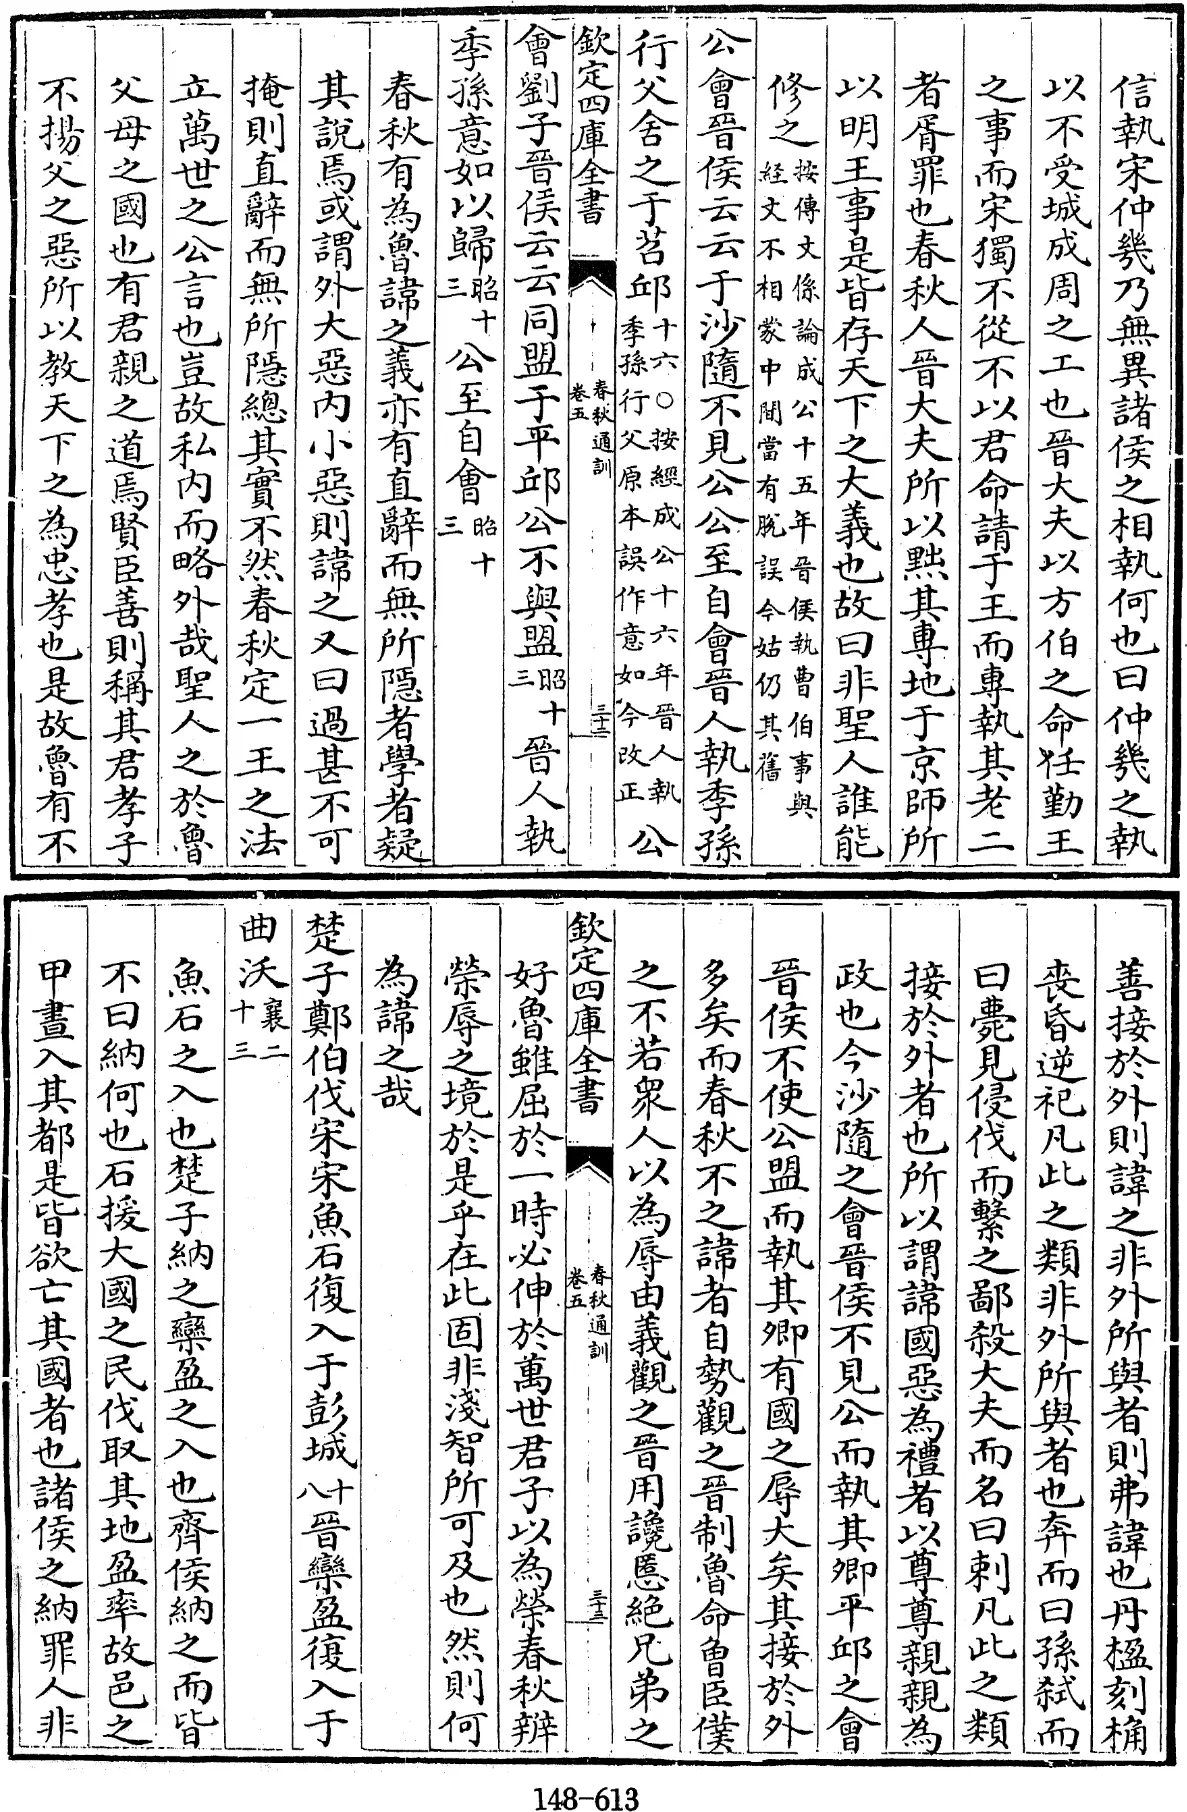 信執宋仲幾乃無異諸侯之相執何也曰仲幾之執
以不受城成周之工也晉大夫以方伯之命任勤王
之事而宋獨不從不以君命請于王而專執其老二
者胥罪也春秋人晉大夫所以黜其專地于京師所
以明王事是皆存天下之大義也故曰非聖人誰能
修之按傳文係論成公十五年晉侯執曹伯事與經文不相蒙中間當有脫誤今姑仍其舊
公會晉侯云云于沙隨不見公公至自會晉人執季孫
行父舍之于苕邱十六○按經成公十六年晉人執季孫行父原本誤作意如今改正公
欽定四庫全書
春秋通訓
卷五
三十二
會劉子晉侯云云同盟于平邱公不與盟昭十三晉人執
季孫意如以歸昭十三公至自會昭十三
春秋有為魯諱之義亦有直辭而無所隱者學者疑
其說焉或謂外大惡內小惡則諱之又曰過甚不可
掩則直辭而無所隱總其實不然春秋定一王之法
立萬世之公言也豈故私內而略外哉聖人之於魯
父母之國也有君親之道焉賢臣善則稱其君孝子
不揚父之惡所以教天下之為忠孝也是故魯有不
善接於外則諱之非外所與者則弗諱也丹楹刻桷
喪昏逆祀凡此之類非外所與者也奔而曰孫弒而
曰薨見侵伐而繫之鄙殺大夫而名曰刺凡此之類
接於外者也所以謂諱國惡為禮者以尊尊親親為
政也今沙隨之會晉侯不見公而執其卿平邱之會
晉侯不使公盟而執其卿有國之辱大矣其接於外
多矣而春秋不之諱者自勢觀之晉制魯命魯臣僕
之不若衆人以為辱由義觀之晉用讒慝絶兄弟之
欽定四庫全書
春秋通訓
卷五
三十三
好魯雖屈於一時必伸於萬世君子以為榮春秋辯
榮辱之境於是乎在此固非淺智所可及也然則何
為諱之哉
楚子鄭伯伐宋宋魚石復入于彭城十八晉欒盈復入于
曲沃襄二十三
魚石之入也楚子納之欒盈之入也齊侯納之而皆
不曰納何也石援大國之民伐取其地盈率故邑之
甲晝入其都是皆欲亡其國者也諸侯之納罪人非
148-613